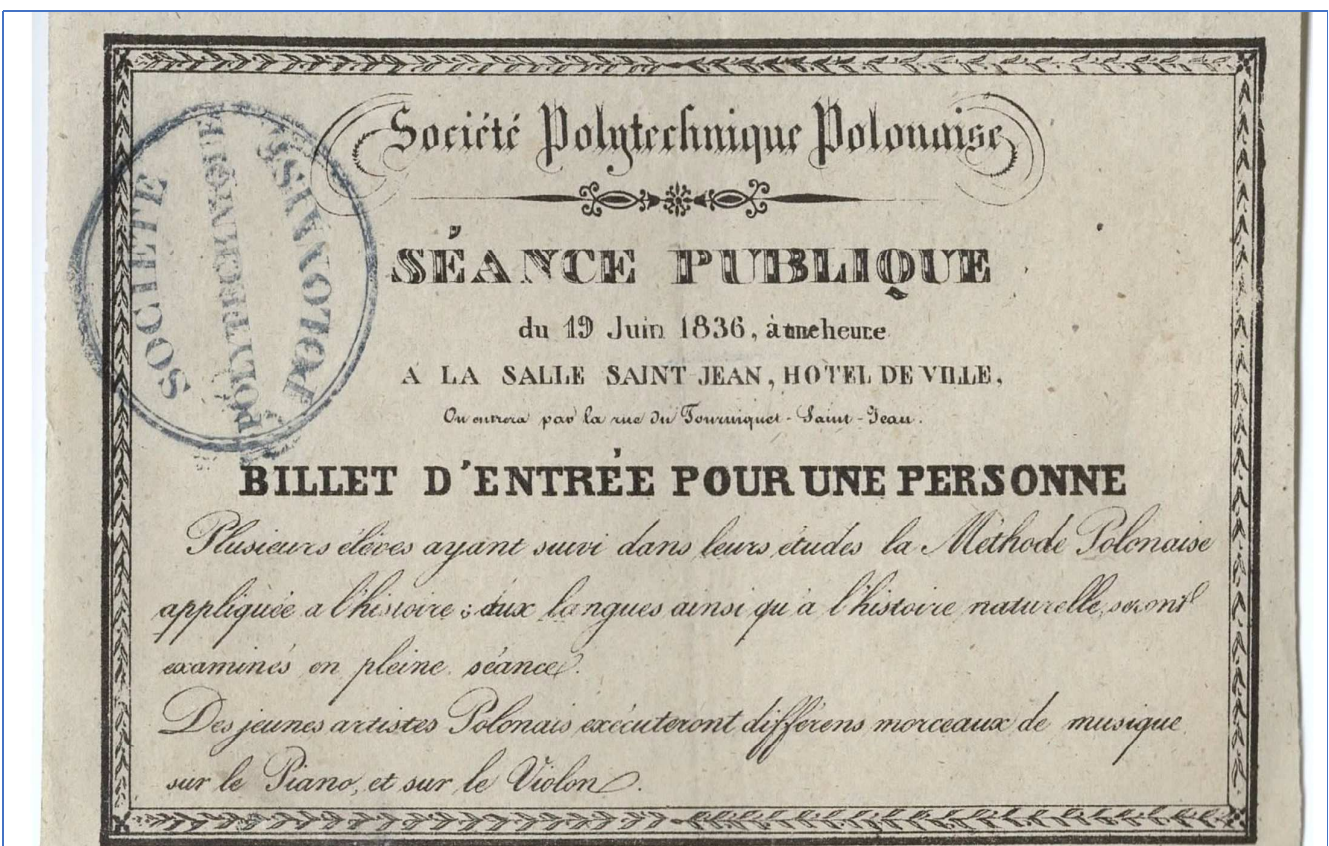 Société Polytechnique Polonaise
SÉANCE PUBLIQUE
du 19 Juin 1836, à une heure
A LA SALLE SAINT-JEAN, HOTEL DE VILLE,
On entrera par la rue du Tourniquet-Saint-Jean.
BILLET D'ENTRÉE POUR UNE PERSONNE
Plusieurs élèves ayant suivi dans leurs études la Méthode Polonaise
appliquée a l'histoire ; aux langues ainsi qu'à l'histoire naturelle, seront
examinés en pleine séance.
Des jeunes artistes Polonais exécuteront différens morceaux de musique
sur le Piano, et sur le Violon.
SOCIETE
POLYTECHNIQUE
POLONAISE